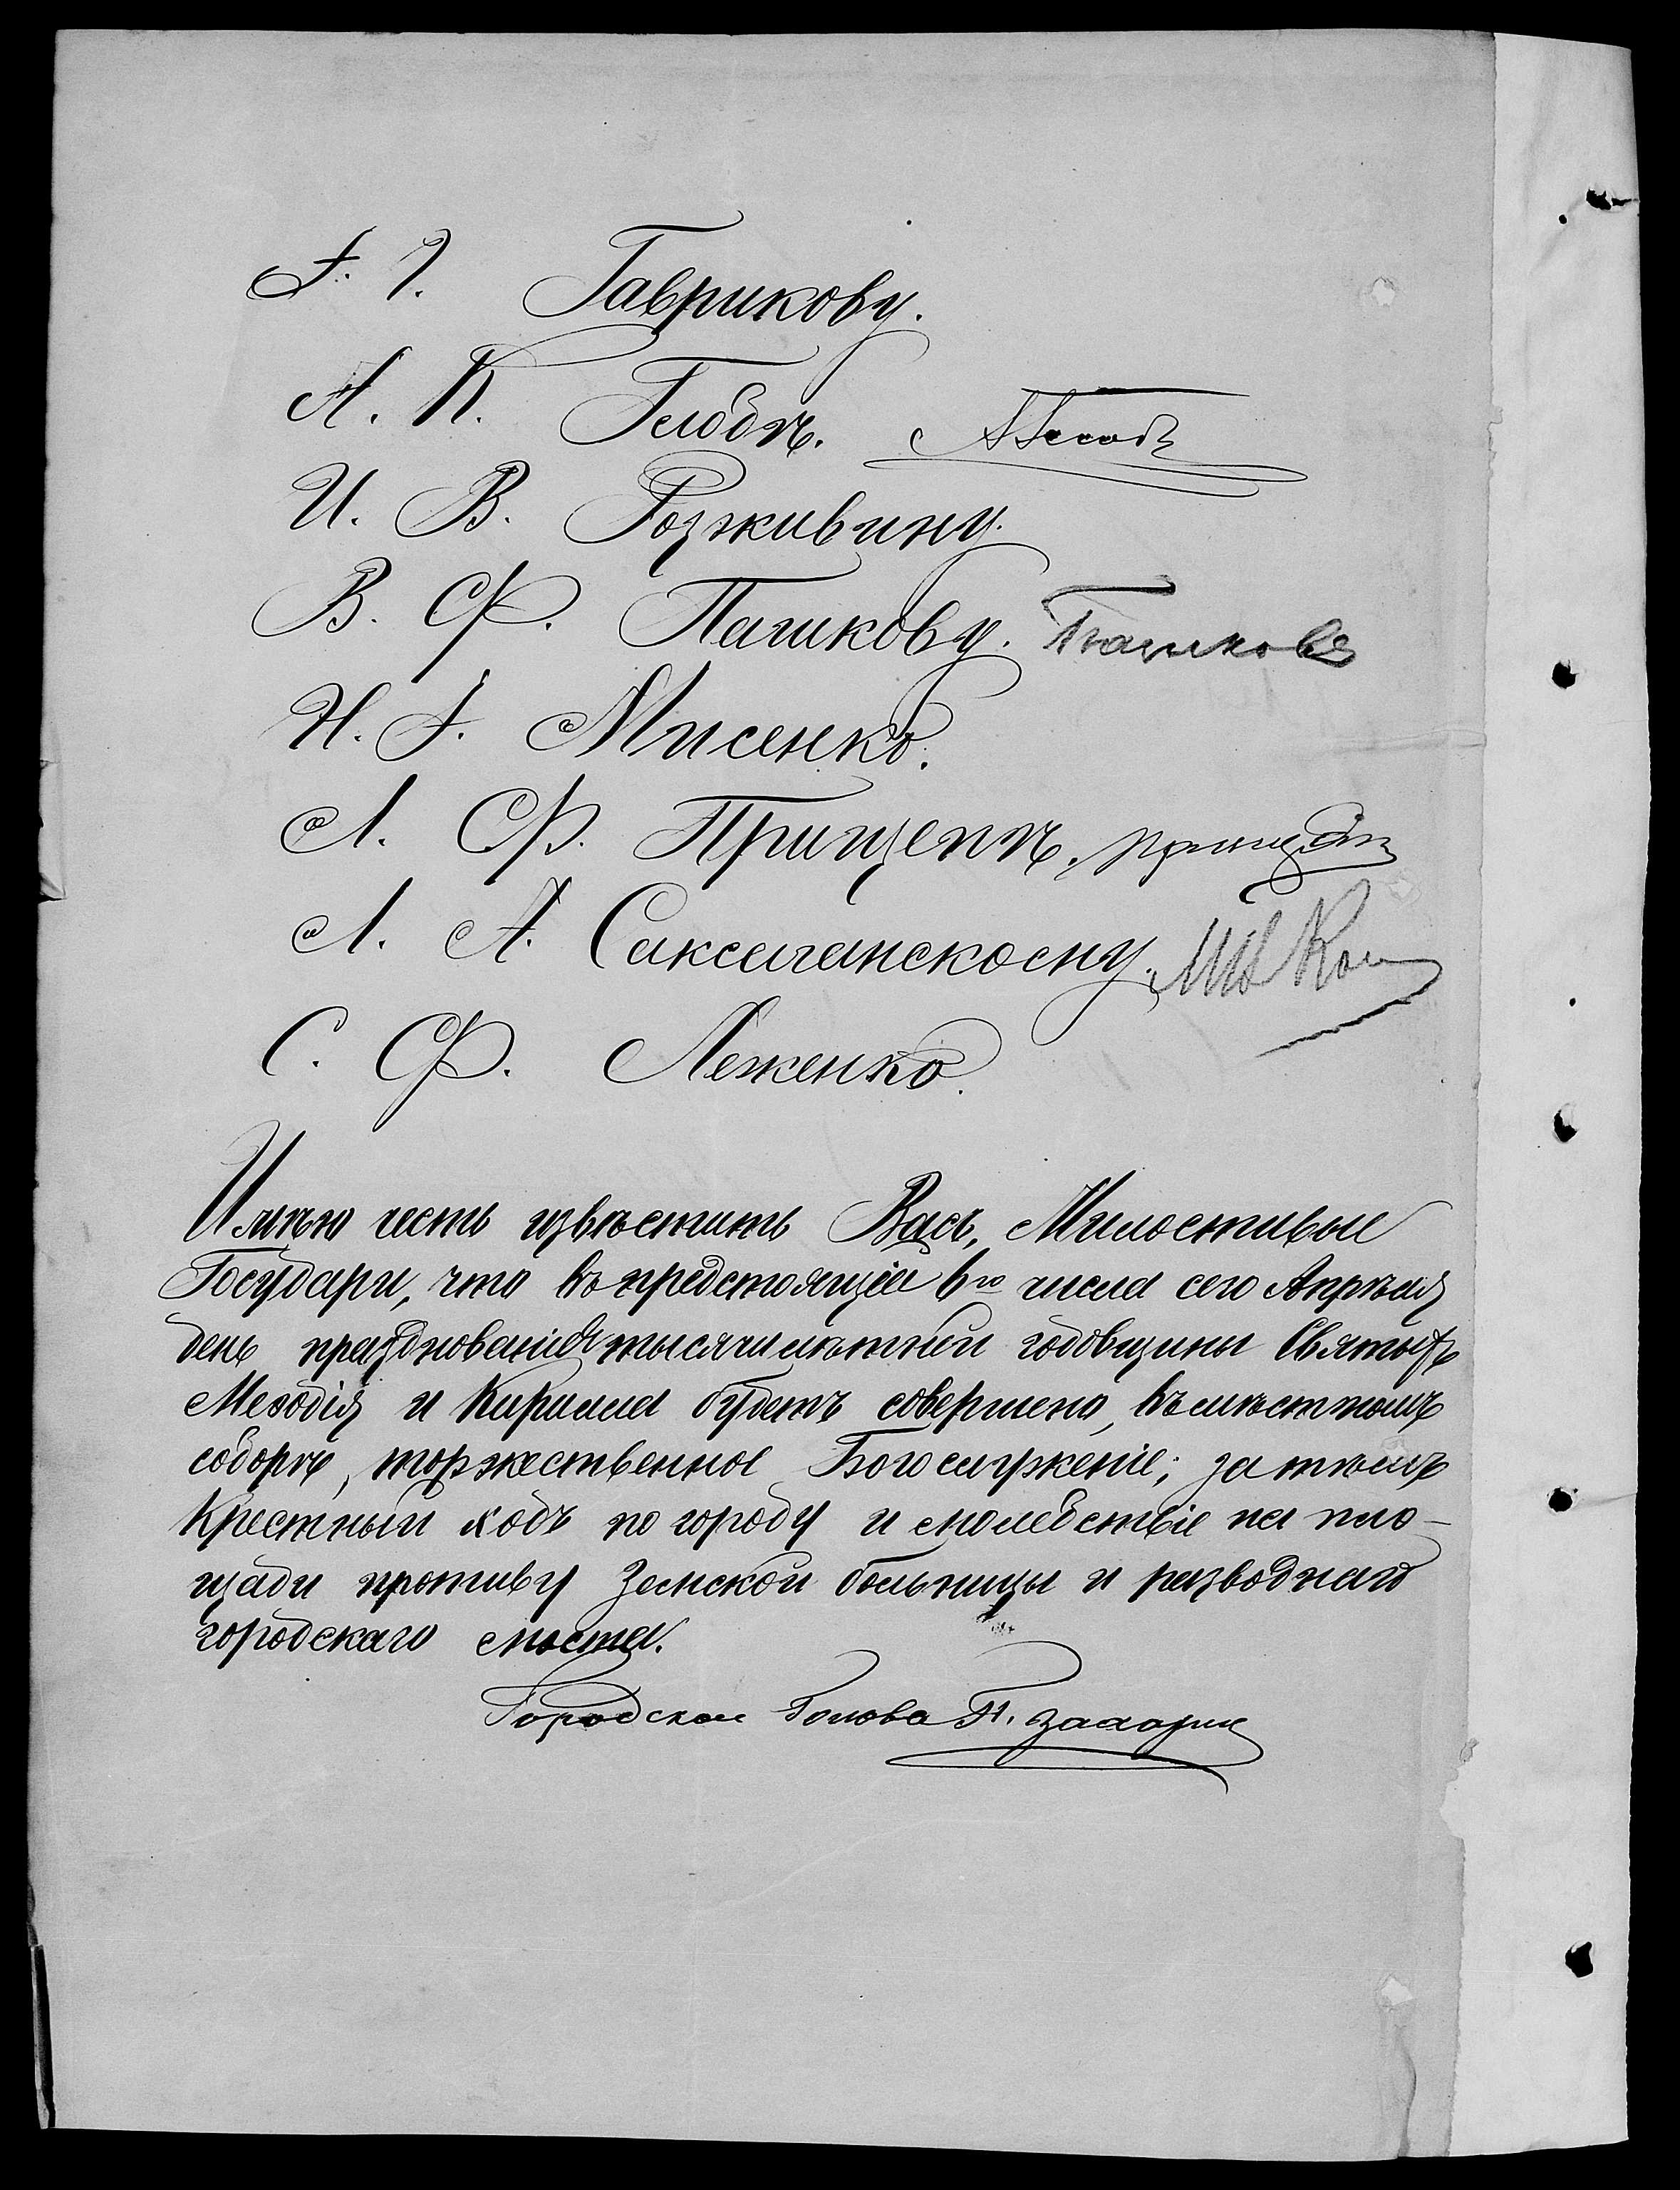 Г. Гаврикову.
А. К. Глобѣ. А Глоба
И. В. Розживину.
В. Ф. Пашкову. Пашковъ
Н. Г. Мисенко.
Л. Ф. Прищепѣ.
Л. А. Саксаганскому.
С. Ф. Леженко.
Имѣю честь извѣстить Васъ, Милостивые
Государи, что въ предстоящій 6го числа сего Апрѣля
день празднованія тысячилѣтней годовщины Святыхъ
Меѳодія и Кирилла будетъ совершено, въ мѣстномъ
соборѣ, торжественное Богослуженіе; за тѣмъ
Крестный ходъ по городу и молебствіе на пло-
щади противу Земской больницы и разводнаго
городскаго моста.
Городской Голова П. Захарин